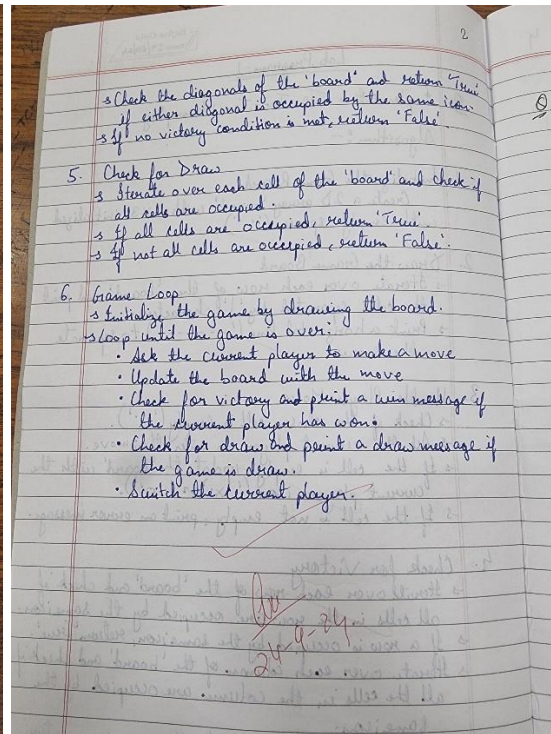 2
→ Check the diagonals of the 'board' and return 'True'
if either diagonal is occupied by the same icon.
→ If no victory condition is met, return 'False'.
5. Check for Draw
→ Iterate over each cell of the 'board' and check if
all cells are occupied.
→ If all cells are occupied, return 'True'.
→ If not all cells are occupied, return 'False'.
6. Game Loop
→ Initialize the game by drawing the board.
→ Loop until the game is over:
• Ask the current player to make a move
• Update the board with the move
• Check for victory and print a win message if
the current player has won.
• Check for draw and print a draw message if
the game is draw.
• Switch the current player.
24-9-24